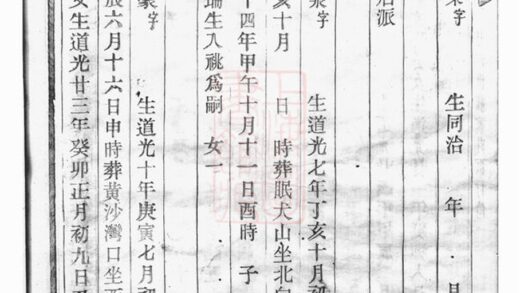 字
生同治 年 月
后派
字
生道光七年丁亥十月初
亥十月 日 時葬眠犬山坐北向
十四年甲午十月十一日酉時 子
瑞生入祧為嗣 女一
字
生道光十年庚寅七月初
辰六月十六日申時葬黃沙灣口坐西
女生道光廿三年癸卯正月初九日